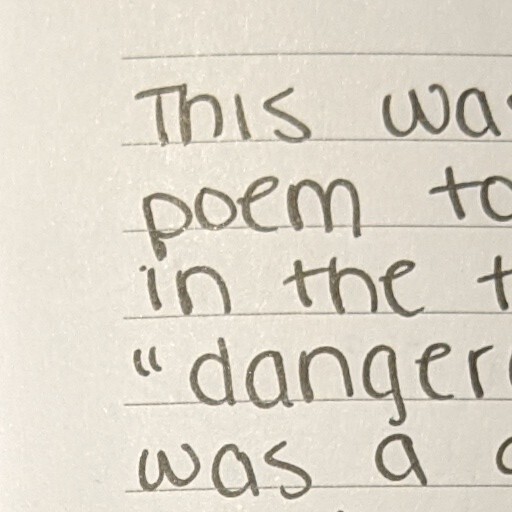 This was
poem to
in the t
"danger
was a